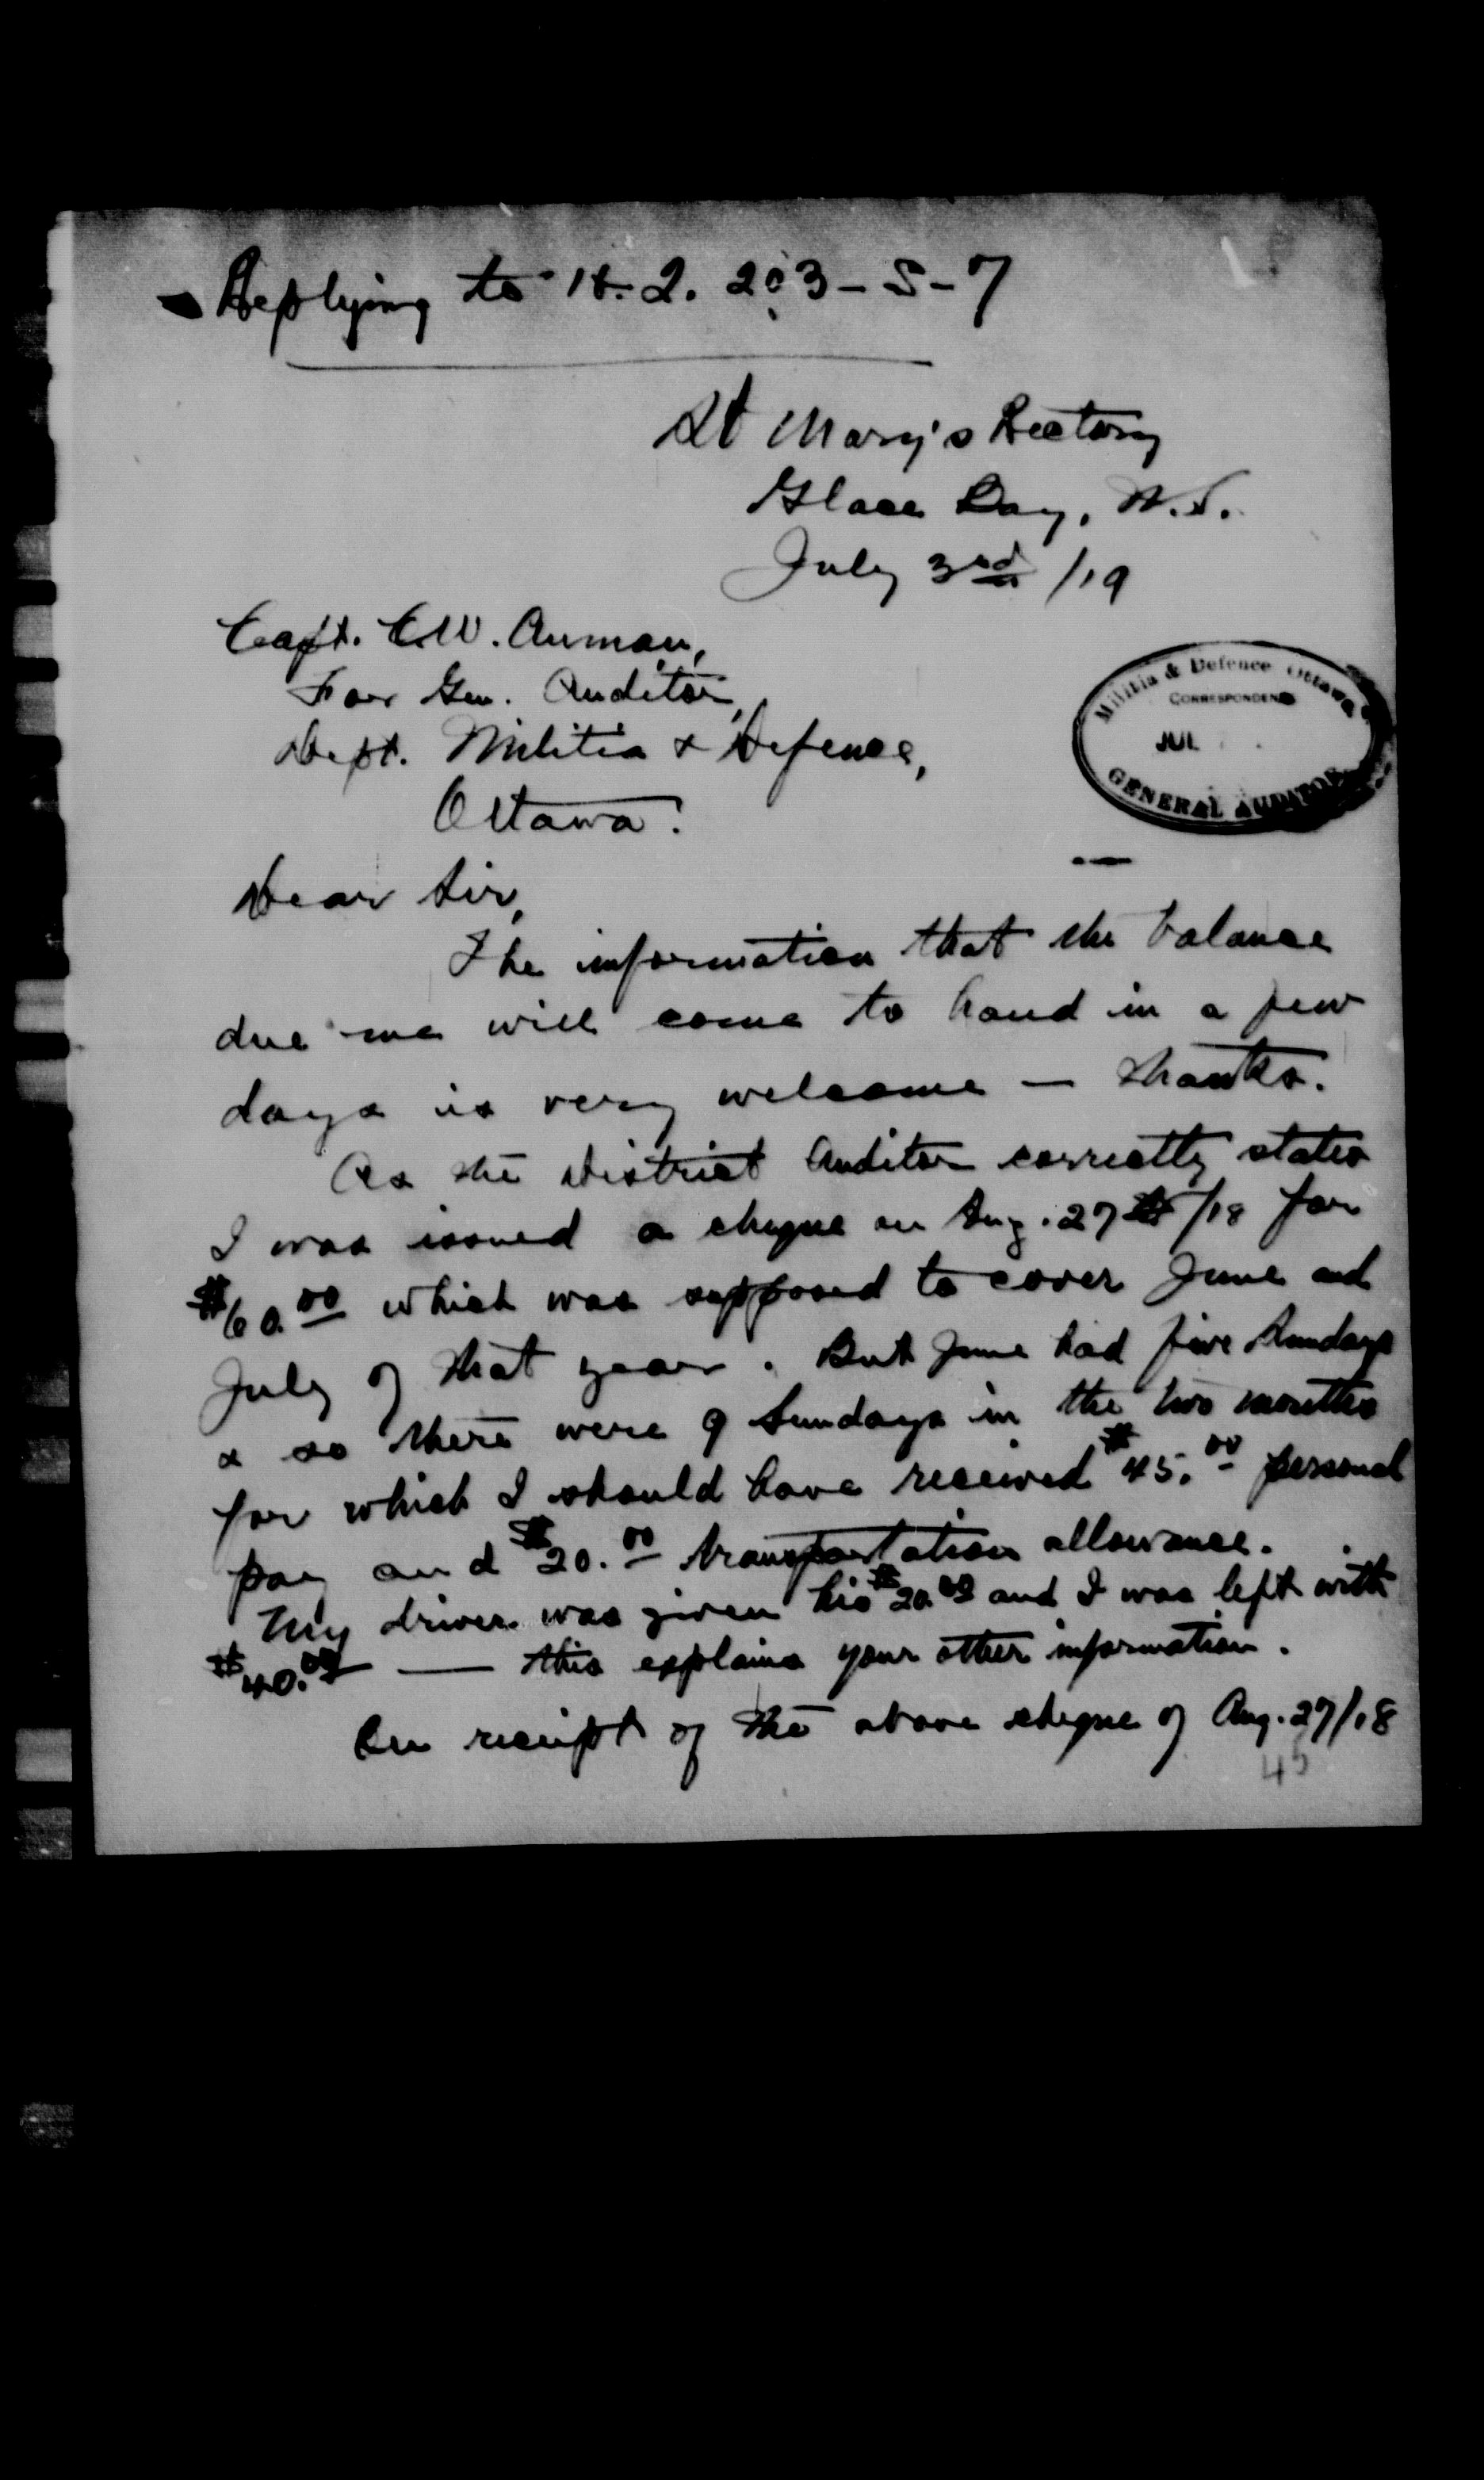 Replying to H.Q. 203-S-7
St Mary's Rectory
Glace Bay, N.S.
July 3rd /19
Capt. C.W. Auman,
For Gen. Auditor,
Dept. Militia & Defence,
Ottawa.
Militia & Defence Ottawa
CORRESPONDENCE
JUL
GENERAL AUDITOR
Dear Sir,
The information that the balance
due me will come to hand in a few
days is very welcome — thanks.
As the District Auditor correctly states
I was issued a cheque on Aug. 27th/18 for
$60.00 which was supposed to cover June and
July of that year. But June had five Sundays
& so there were 9 Sundays in the two months
for which I should have received $45.00 personal
pay and $20.00 transportation allowance.
My driver was given his $20.00 and I was left with
$40.00 — this explains your other information.
On receipt of the above cheque of Aug. 27/18
45